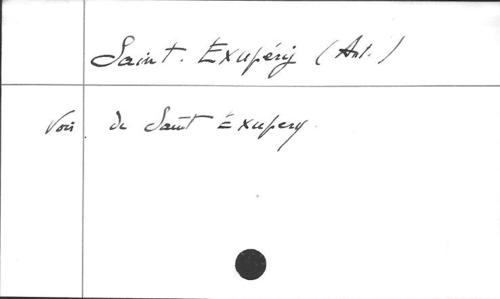 Saint. Exupéry (Ant.)
Voir de Saint Éxupery